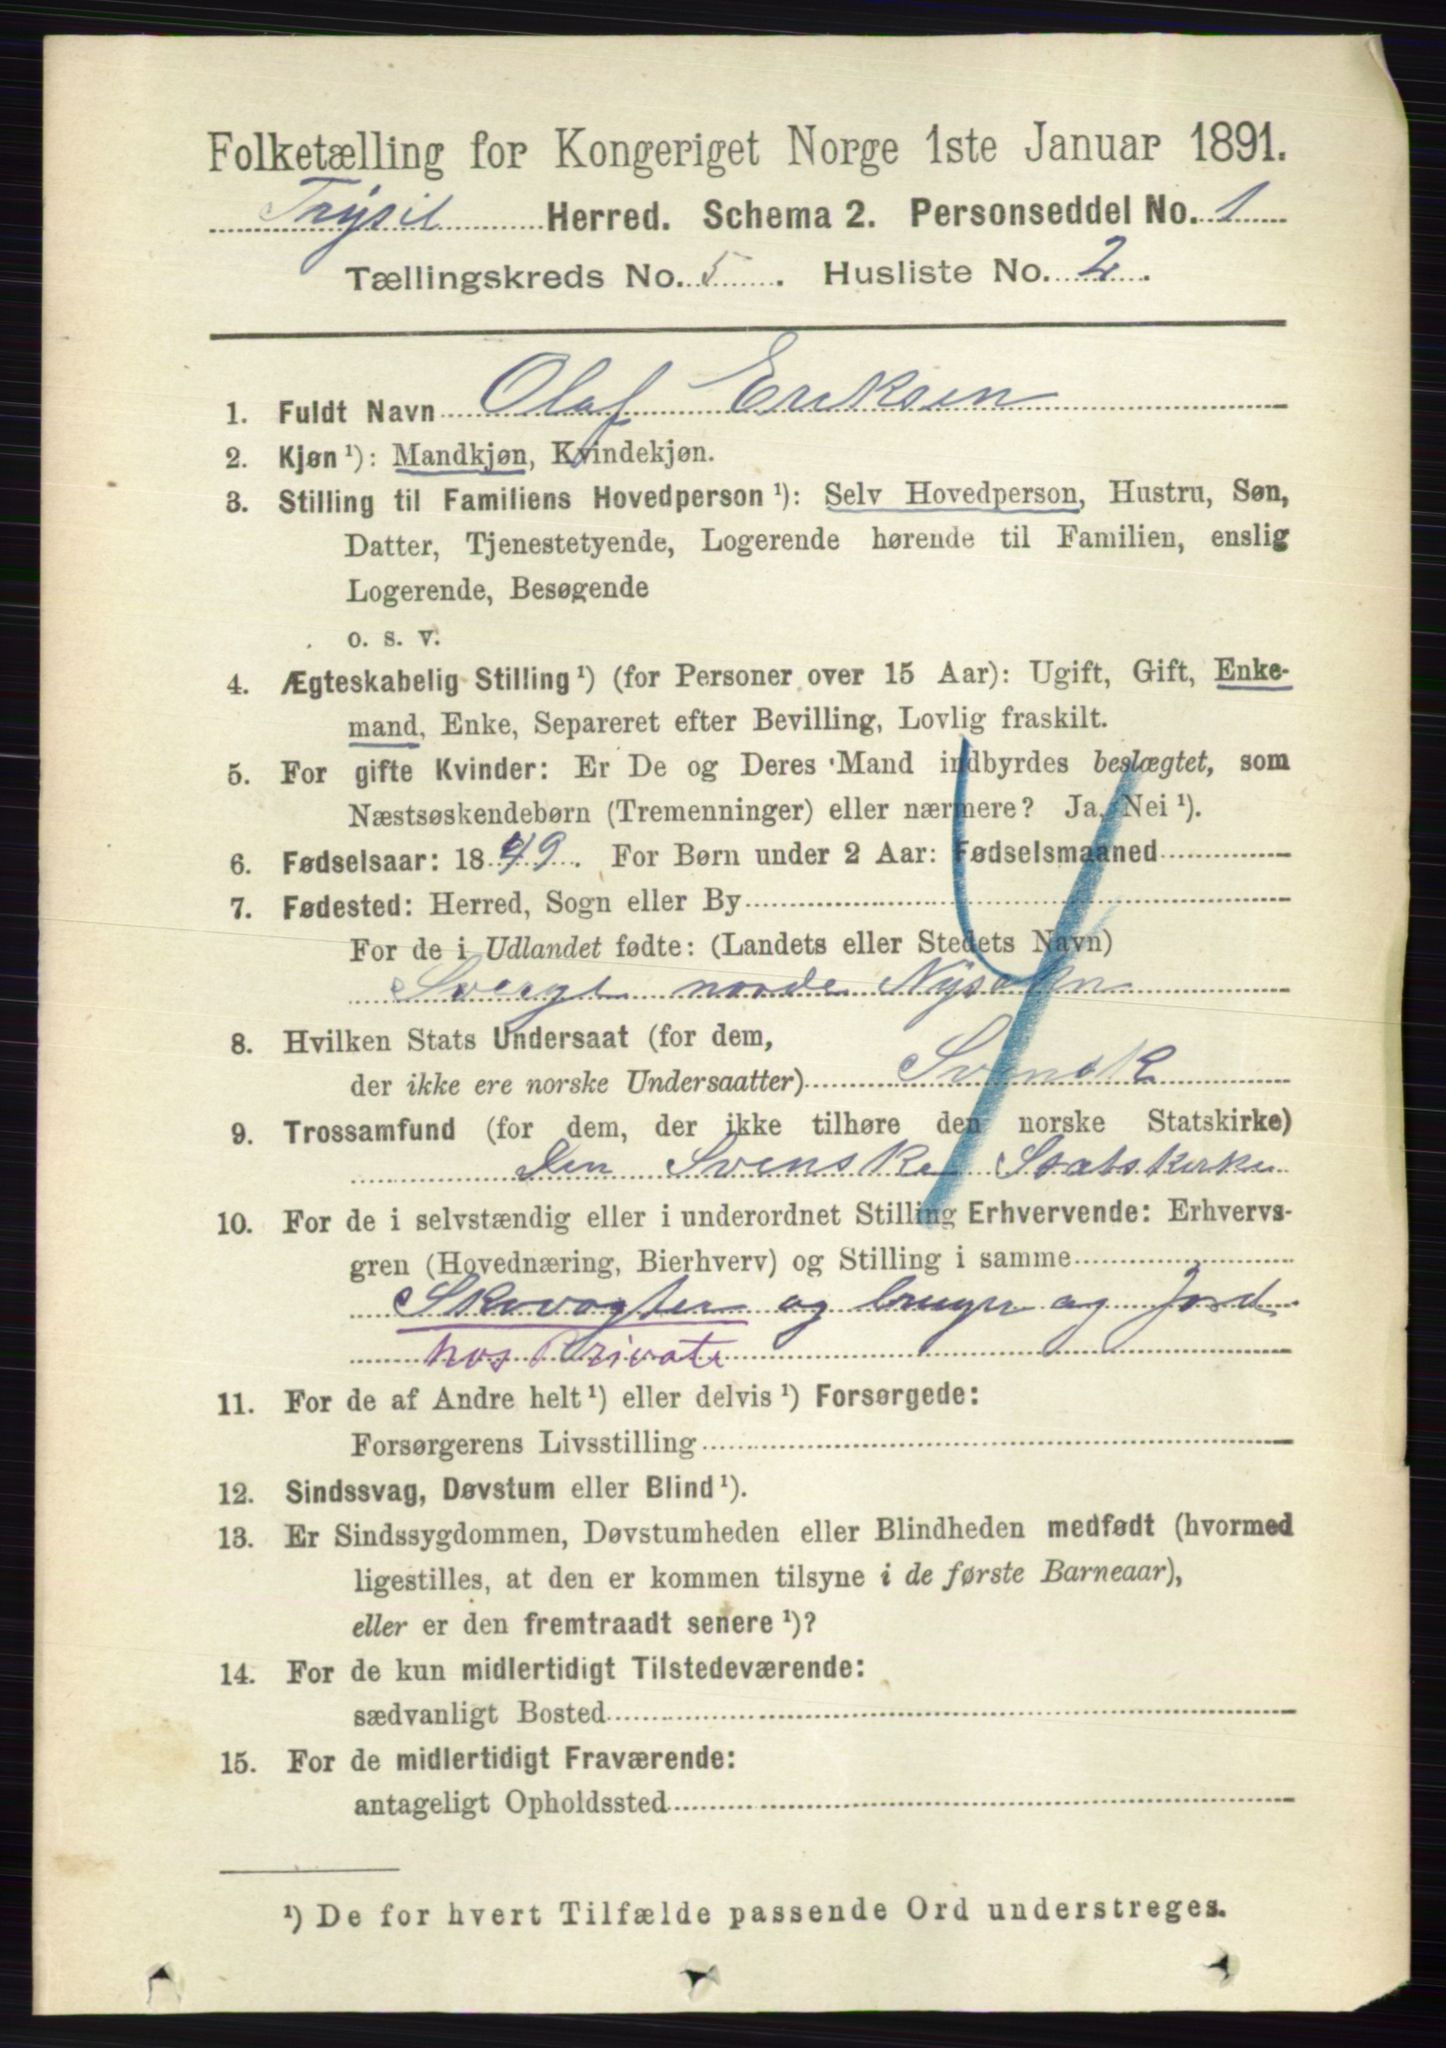 Folketælling for Kongeriget Norge 1ste Januar 1891.
Trysil Herred. Schema 2. Personseddel No. 1
Tællingskreds No. 5. Husliste No. 2.
1. Fuldt Navn Olaf Eriksen
2. Kjøn ¹): Mandkjøn, Kvindekjøn.
3. Stilling til Familiens Hovedperson ¹): Selv Hovedperson, Hustru, Søn,
Datter, Tjenestetyende, Logerende hørende til Familien, enslig
Logerende, Besøgende
o. s. v.
4. Ægteskabelig Stilling ¹) (for Personer over 15 Aar): Ugift, Gift, Enke-
mand, Enke, Separeret efter Bevilling, Lovlig fraskilt.
5. For gifte Kvinder: Er De og Deres Mand indbyrdes beslægtet, som
Næstsøskendebørn (Tremenninger) eller nærmere? Ja, Nei ¹).
6. Fødselsaar: 1849. For Børn under 2 Aar: Fødselsmaaned
7. Fødested: Herred, Sogn eller By
For de i Udlandet fødte: (Landets eller Stedets Navn)
Sverge
8. Hvilken Stats Undersaat (for dem,
der ikke ere norske Undersaatter) Svensk
9. Trossamfund (for dem, der ikke tilhøre den norske Statskirke)
Den Svenske Statskirke
10. For de i selvstændig eller i underordnet Stilling Erhvervende: Erhvervs-
gren (Hovednæring, Bierhverv) og Stilling i samme
Skovogter og bruger og Jord
hos Private
11. For de af Andre helt ¹) eller delvis ¹) Forsørgede:
Forsørgerens Livsstilling
12. Sindssvag, Døvstum eller Blind ¹).
13. Er Sindssygdommen, Døvstumheden eller Blindheden medfødt (hvormed
ligestilles, at den er kommen tilsyne i de første Barneaar),
eller er den fremtraadt senere ¹)?
14. For de kun midlertidigt Tilstedeværende:
sædvanligt Bosted
15. For de midlertidigt Fraværende:
antageligt Opholdssted
¹) De for hvert Tilfælde passende Ord understreges.